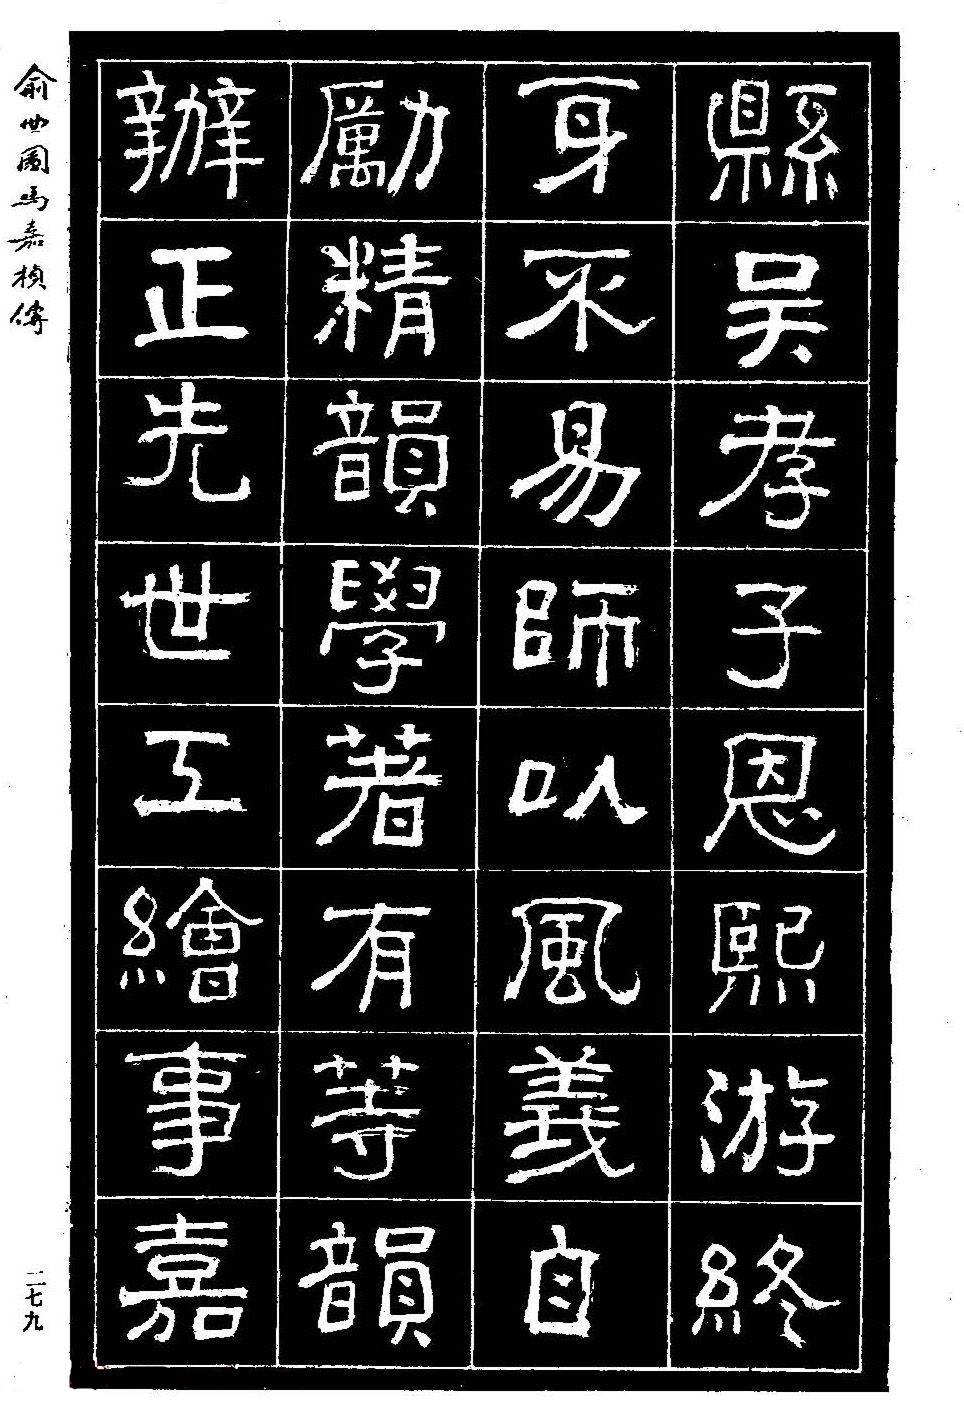 縣吳孝子恩熙游終
身不易師以風義自
勵精韻學著有等韻
辦正先世工繪事嘉
俞世圃馬嘉楨傳
二七九